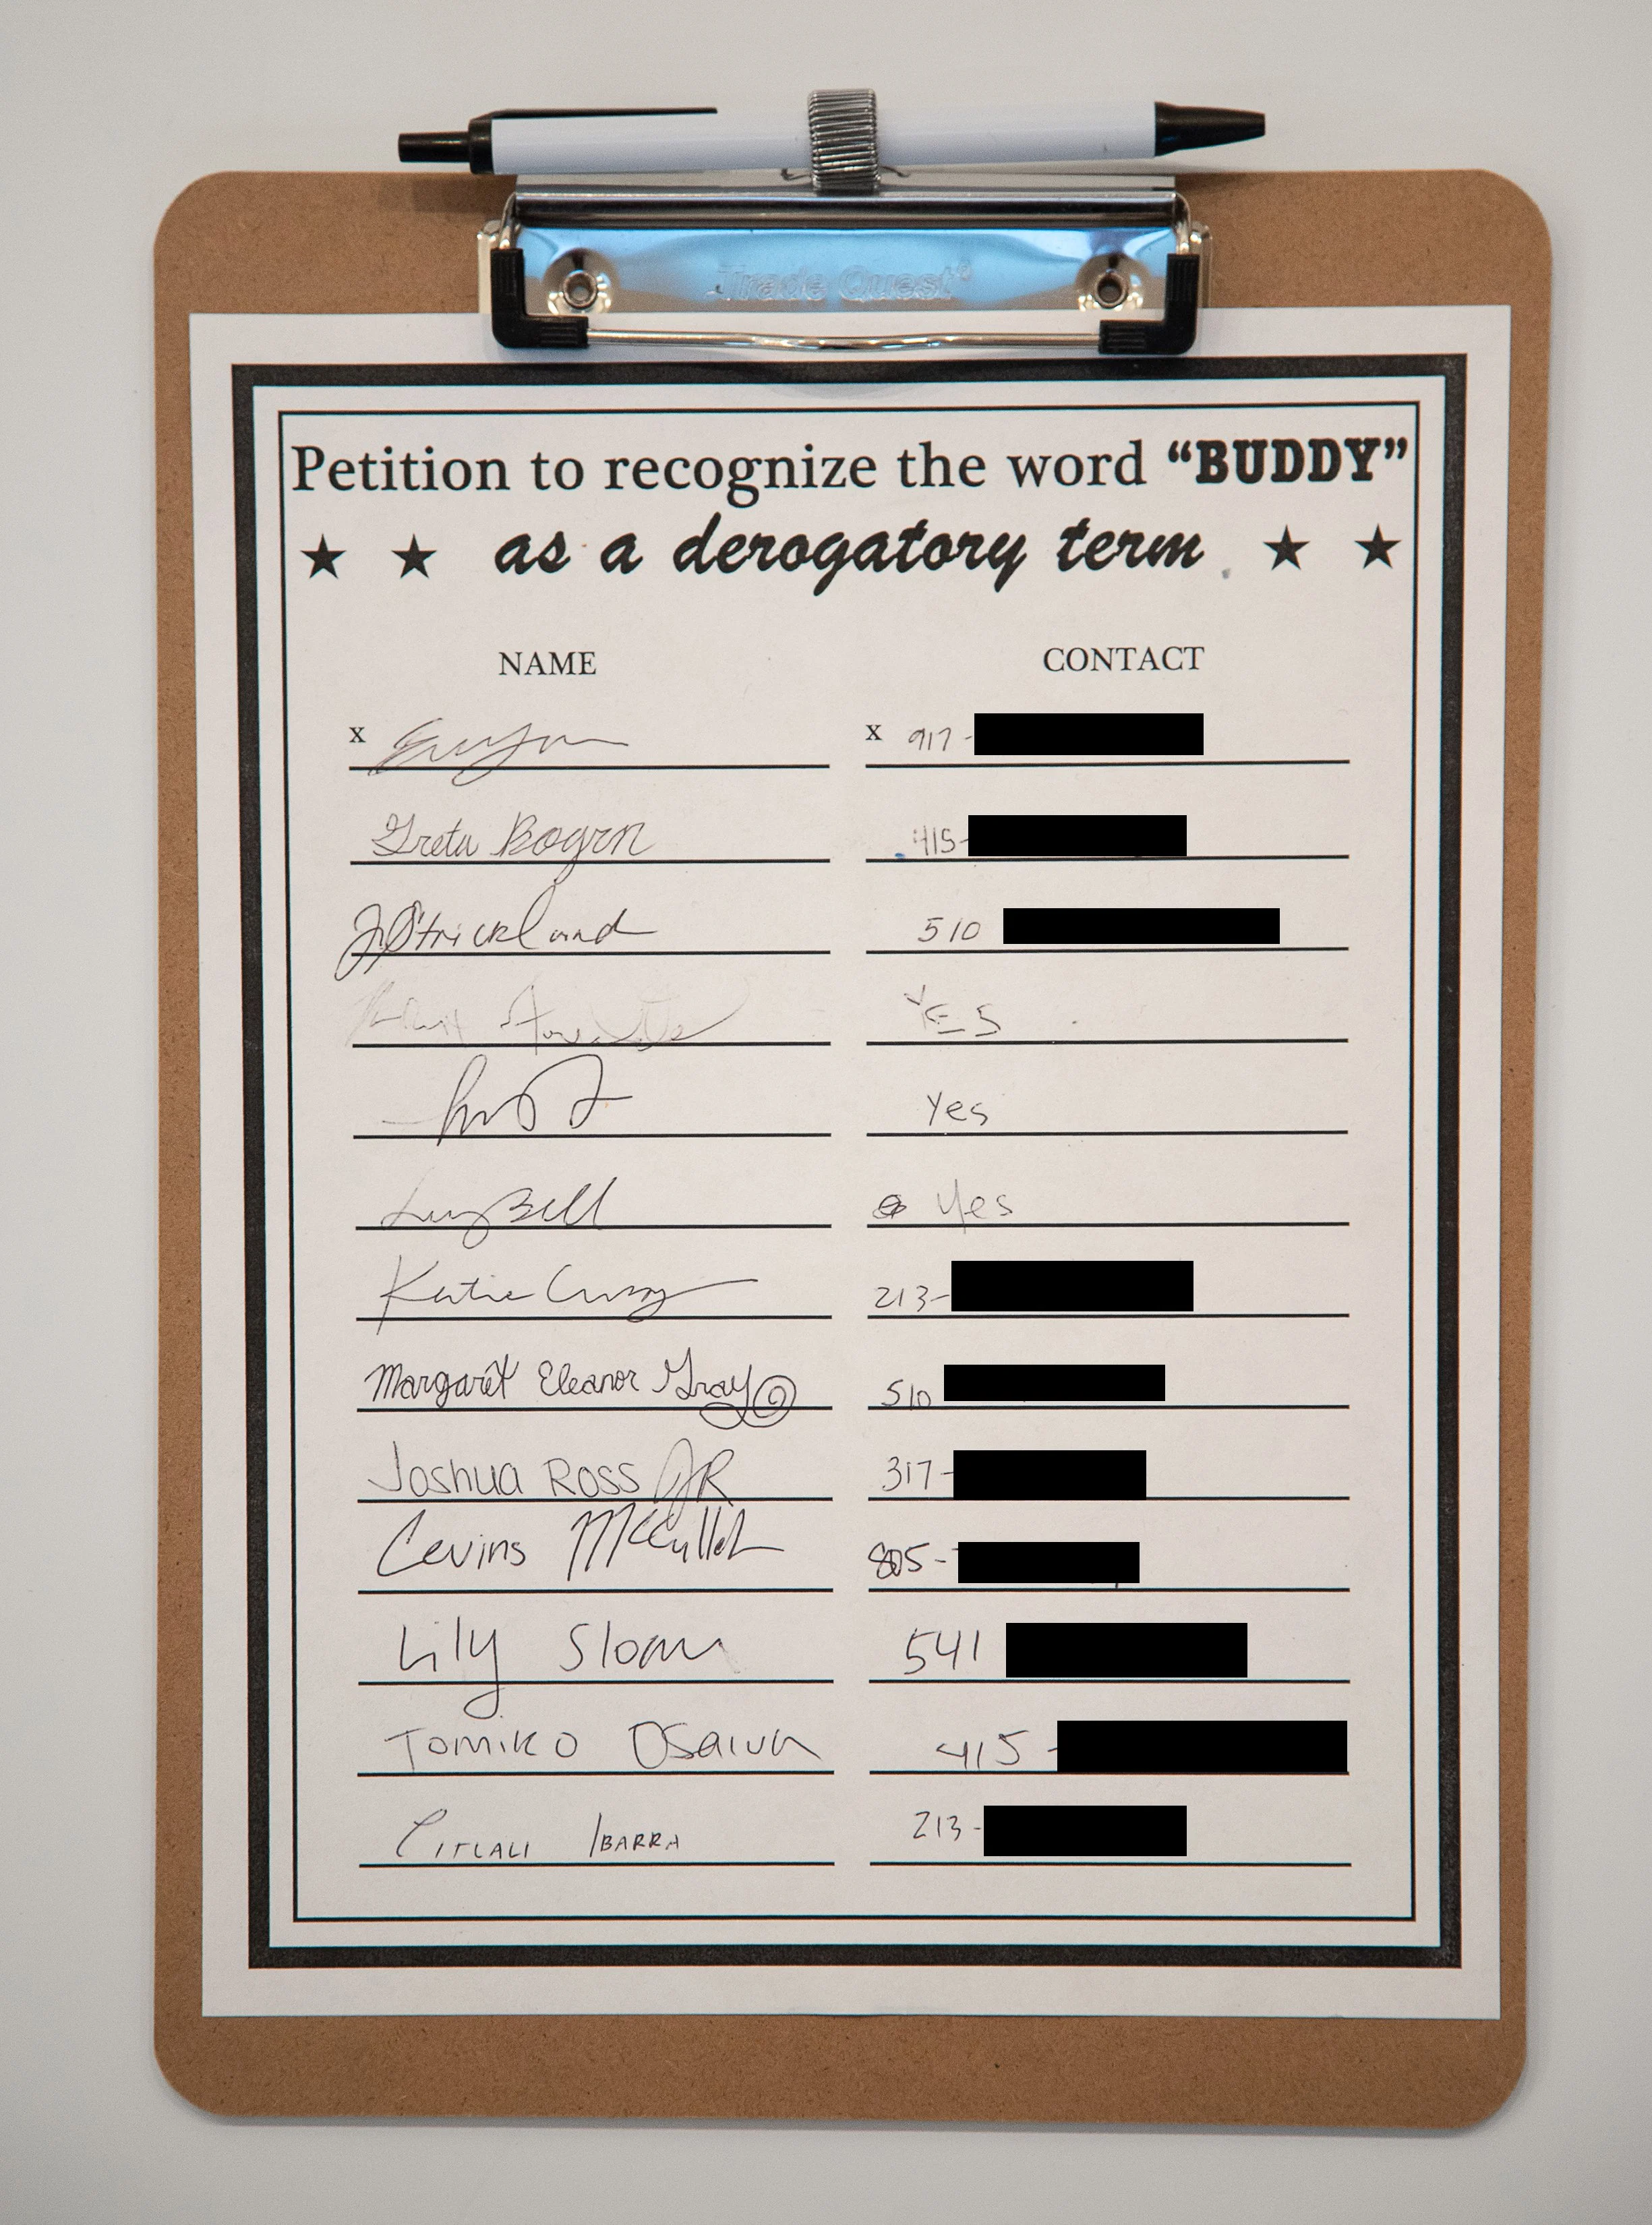 Trade Quest®
Petition to recognize the word “BUDDY”
★ ★ as a derogatory term ★ ★
NAME CONTACT
x x 917-
Greta 415-
J Strickland 510
YES
Yes
Lucy Bell Yes
Katie 213-
Margaret Eleanor Gray 510
Joshua Ross JR 317-
Cevins 805-
Lily Sloan 541
Tomiko 415-
Citlali Ibarra 213-